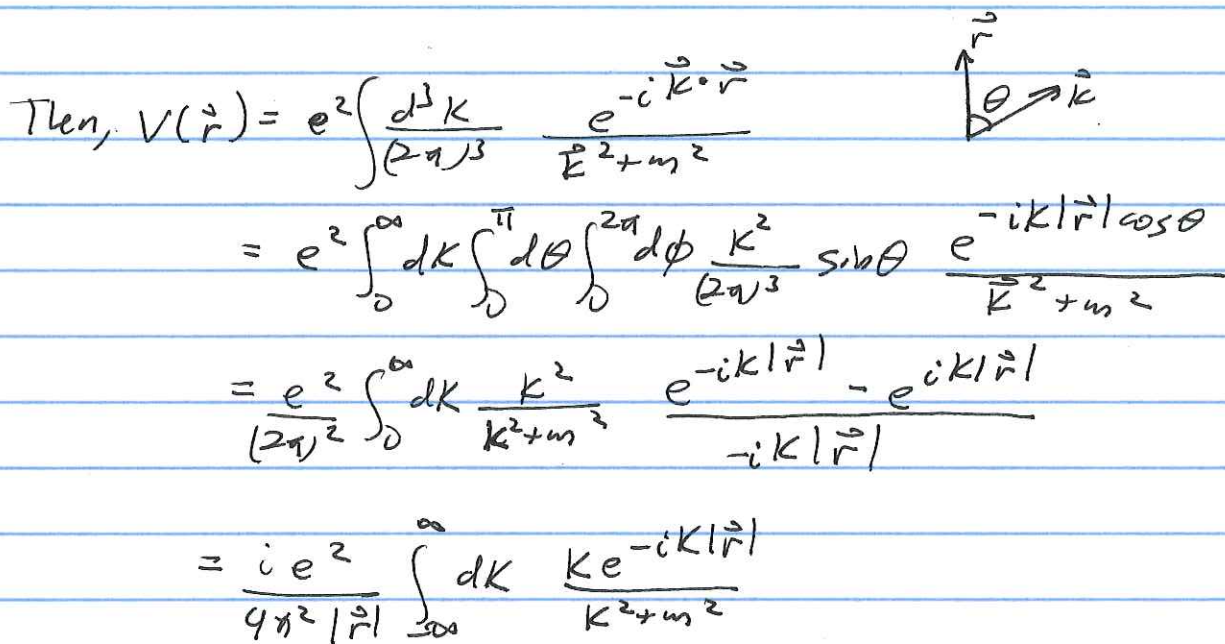 Then, V(r⃗) = e² ∫ d³k/(2π)³ e^(-i k⃗·r⃗)/(k⃗²+m²)
r⃗ θ k⃗
= e² ∫₀^∞ dk ∫₀^π dθ ∫₀^2π dφ k²/(2π)³ sinθ e^(-ik|r⃗|cosθ)/(k⃗²+m²)
= e²/(2π)² ∫₀^∞ dk k²/(k²+m²) (e^(-ik|r⃗|) - e^(ik|r⃗|))/(-ik|r⃗|)
= ie²/(4π²|r⃗|) ∫_-∞^∞ dk ke^(-ik|r⃗|)/(k²+m²)